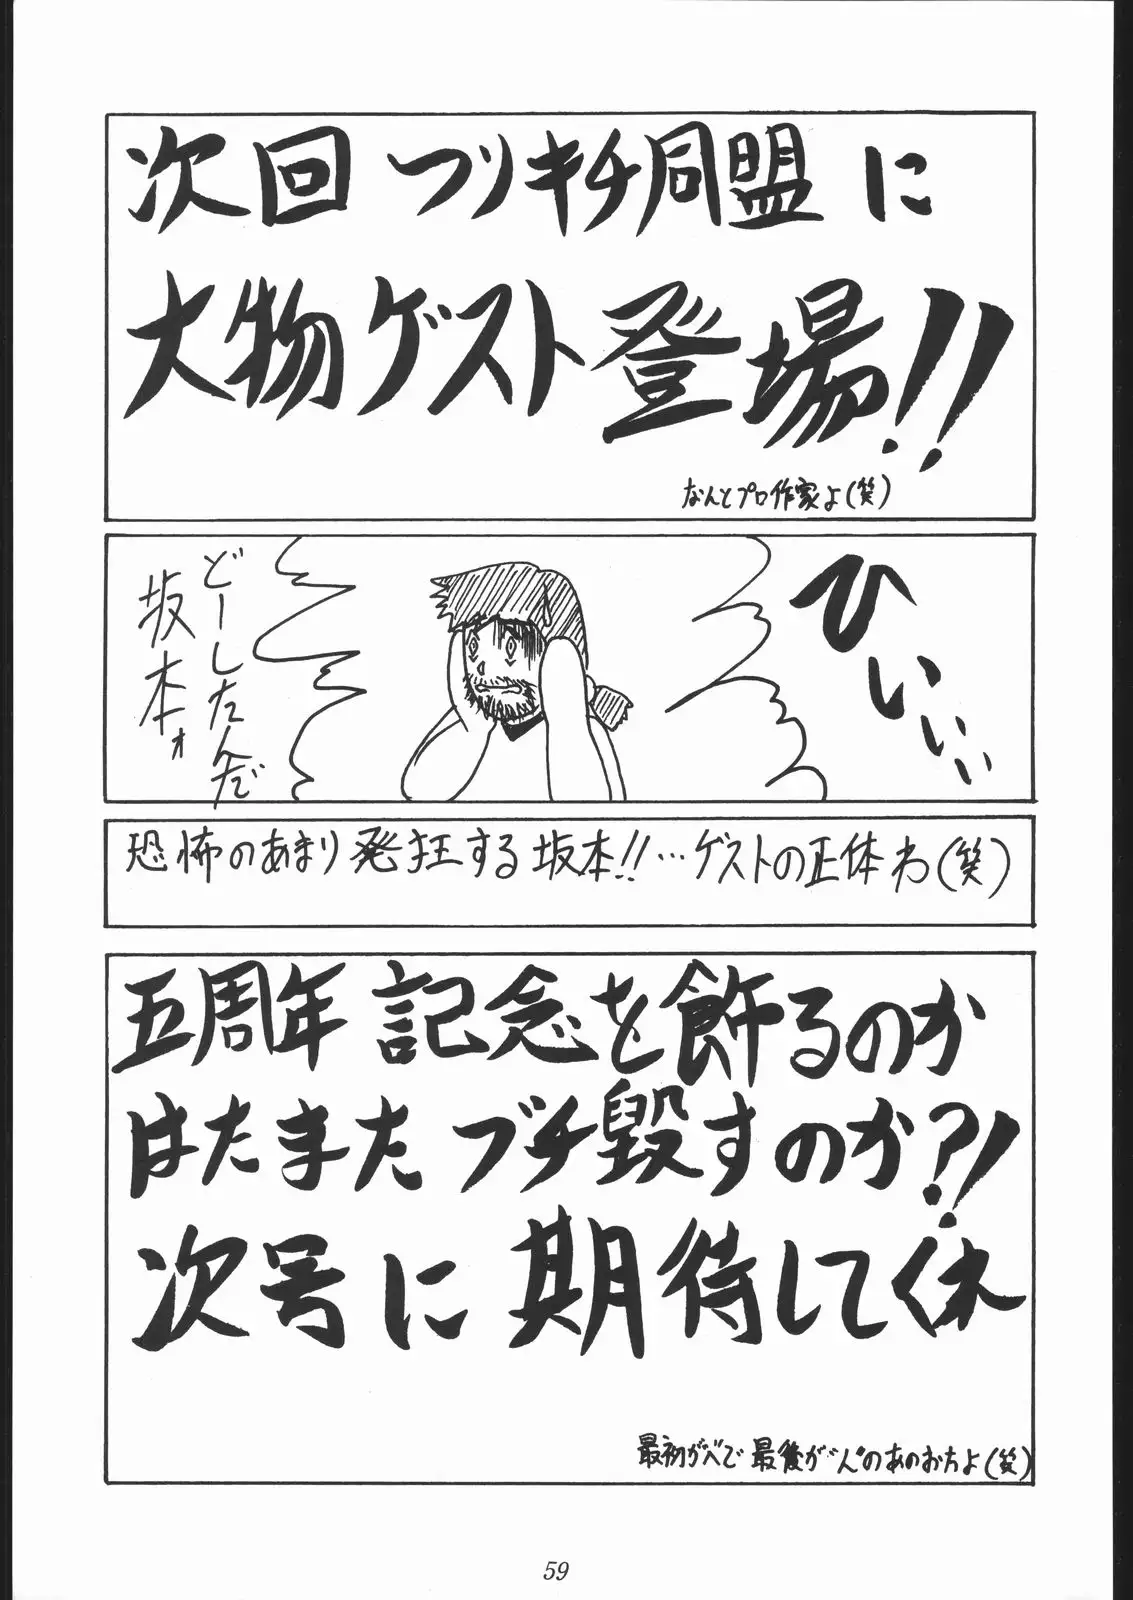 次回 ツリキチ同盟 に
大物ゲスト登場!!
なんとプロ作家よ(笑)
ひいぃぃ
どーしたんだ
坂本ォ
恐怖のあまり発狂する坂本!!…ゲストの正体わ(笑)
五周年 記念を飾るのか
はたまた ブチ毀すのか?!
次号に 期待してくれ
最初が"べ"で 最後が"ん"のあのお方よ(笑)
59